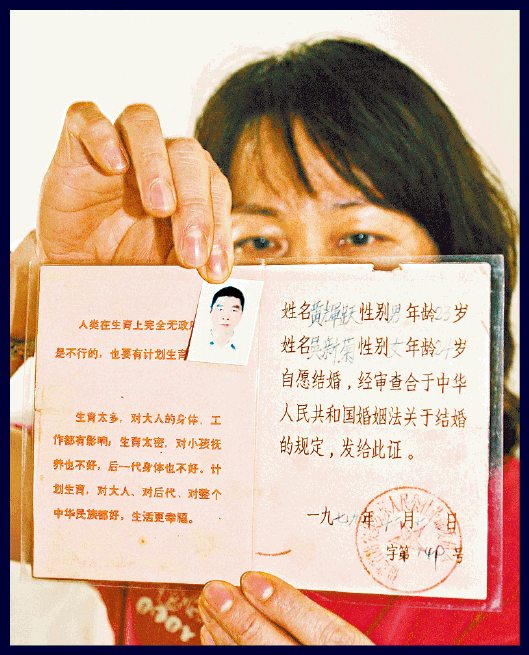 人类在生育上完全无政府
是不行的，也要有计划生育
生育太多，对大人的身体、工
作都有影响；生育太密，对小孩抚
养也不好，后一代身体也不好。计
划生育，对大人、对后代、对整个
中华民族都好，生活更幸福。
姓名黄辉跃性别男年龄23岁
姓名吴新菊性别女年龄24岁
自愿结婚，经审查合于中华
人民共和国婚姻法关于结婚
的规定，发给此证。
一九七 年 月 日
字第 号